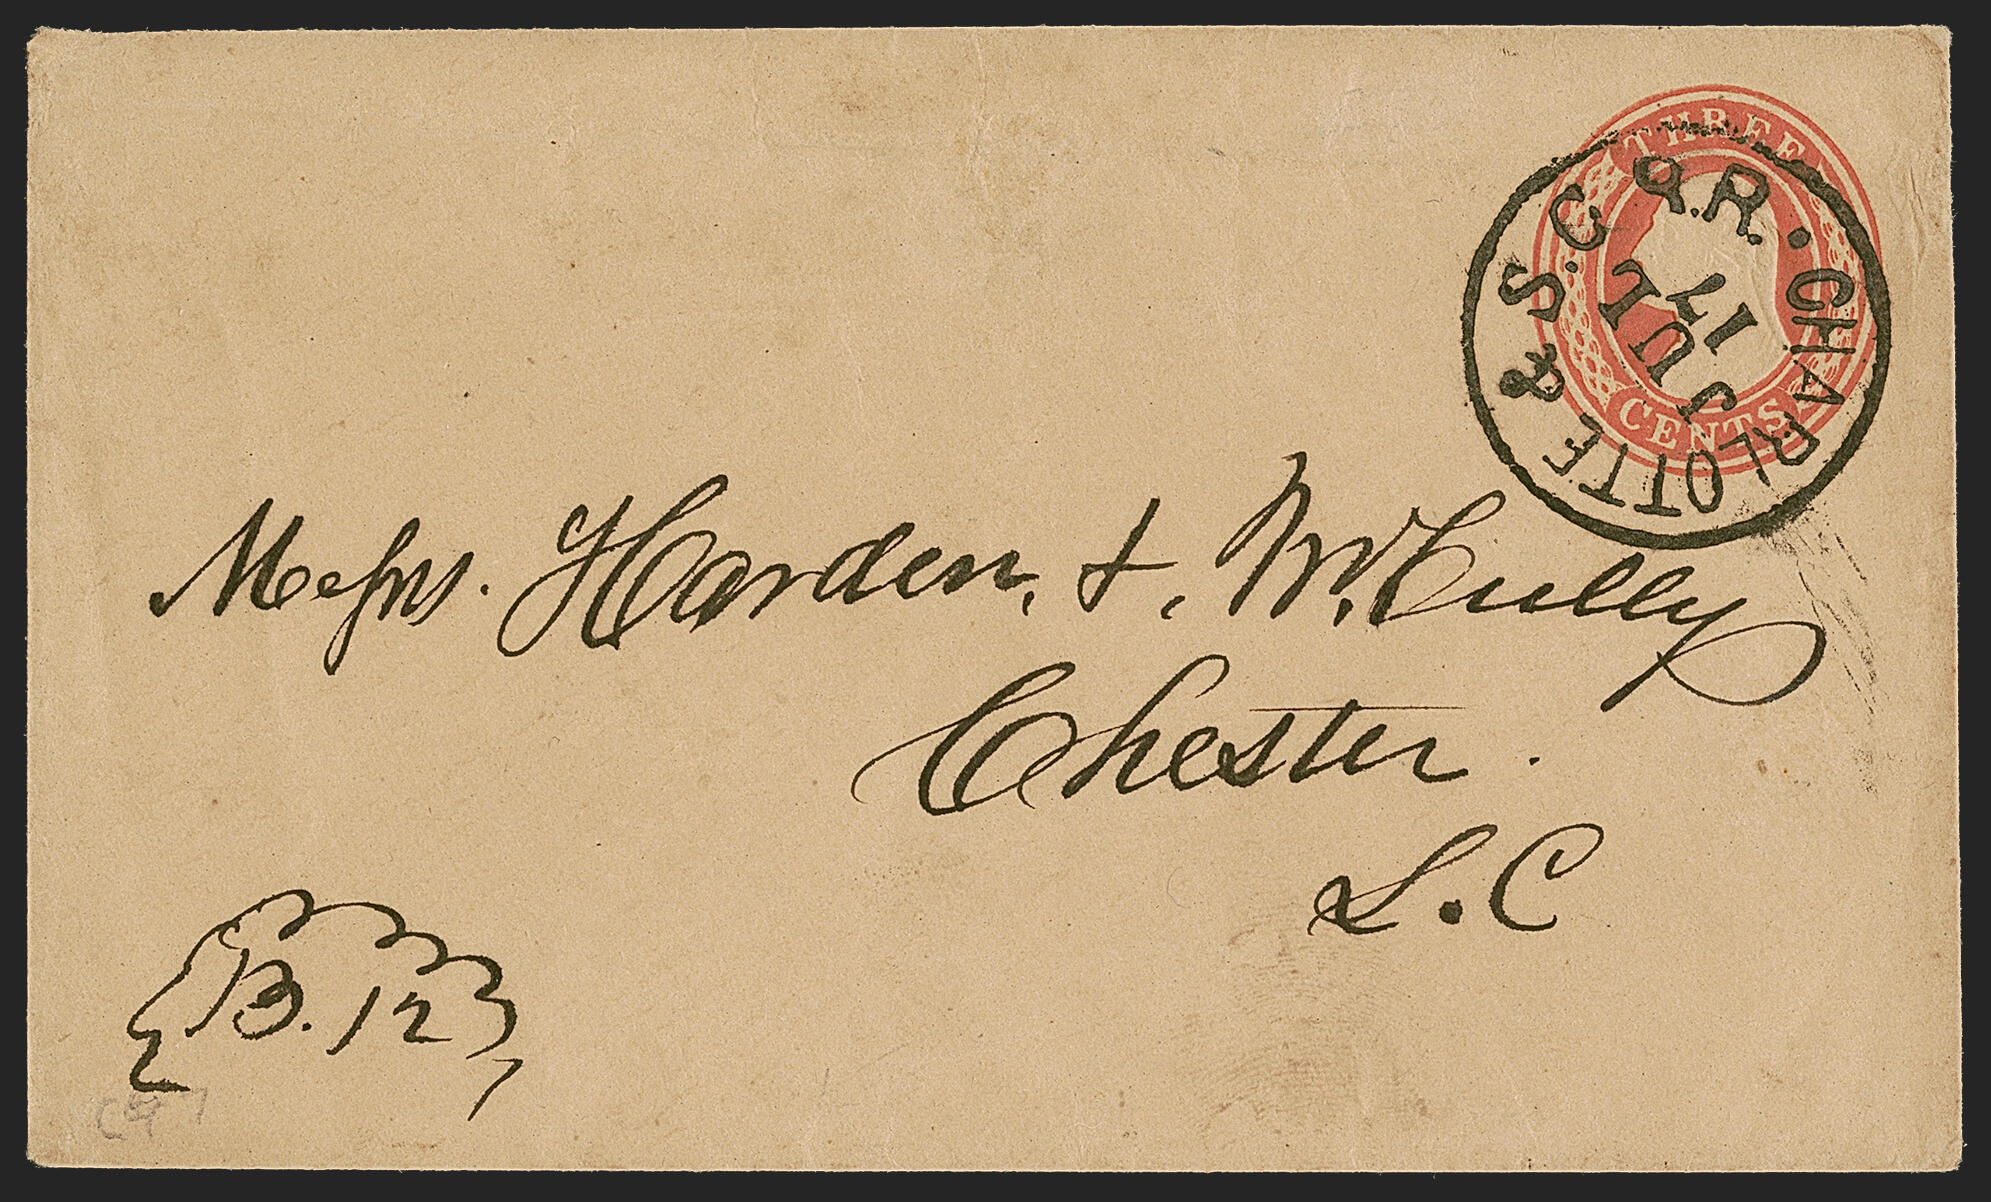 THREE
CENTS
CHARLOTTE & S.C. R.R.
JUL
17
Messrs. Harden, & McCully
Chester.
S.C
B. 12